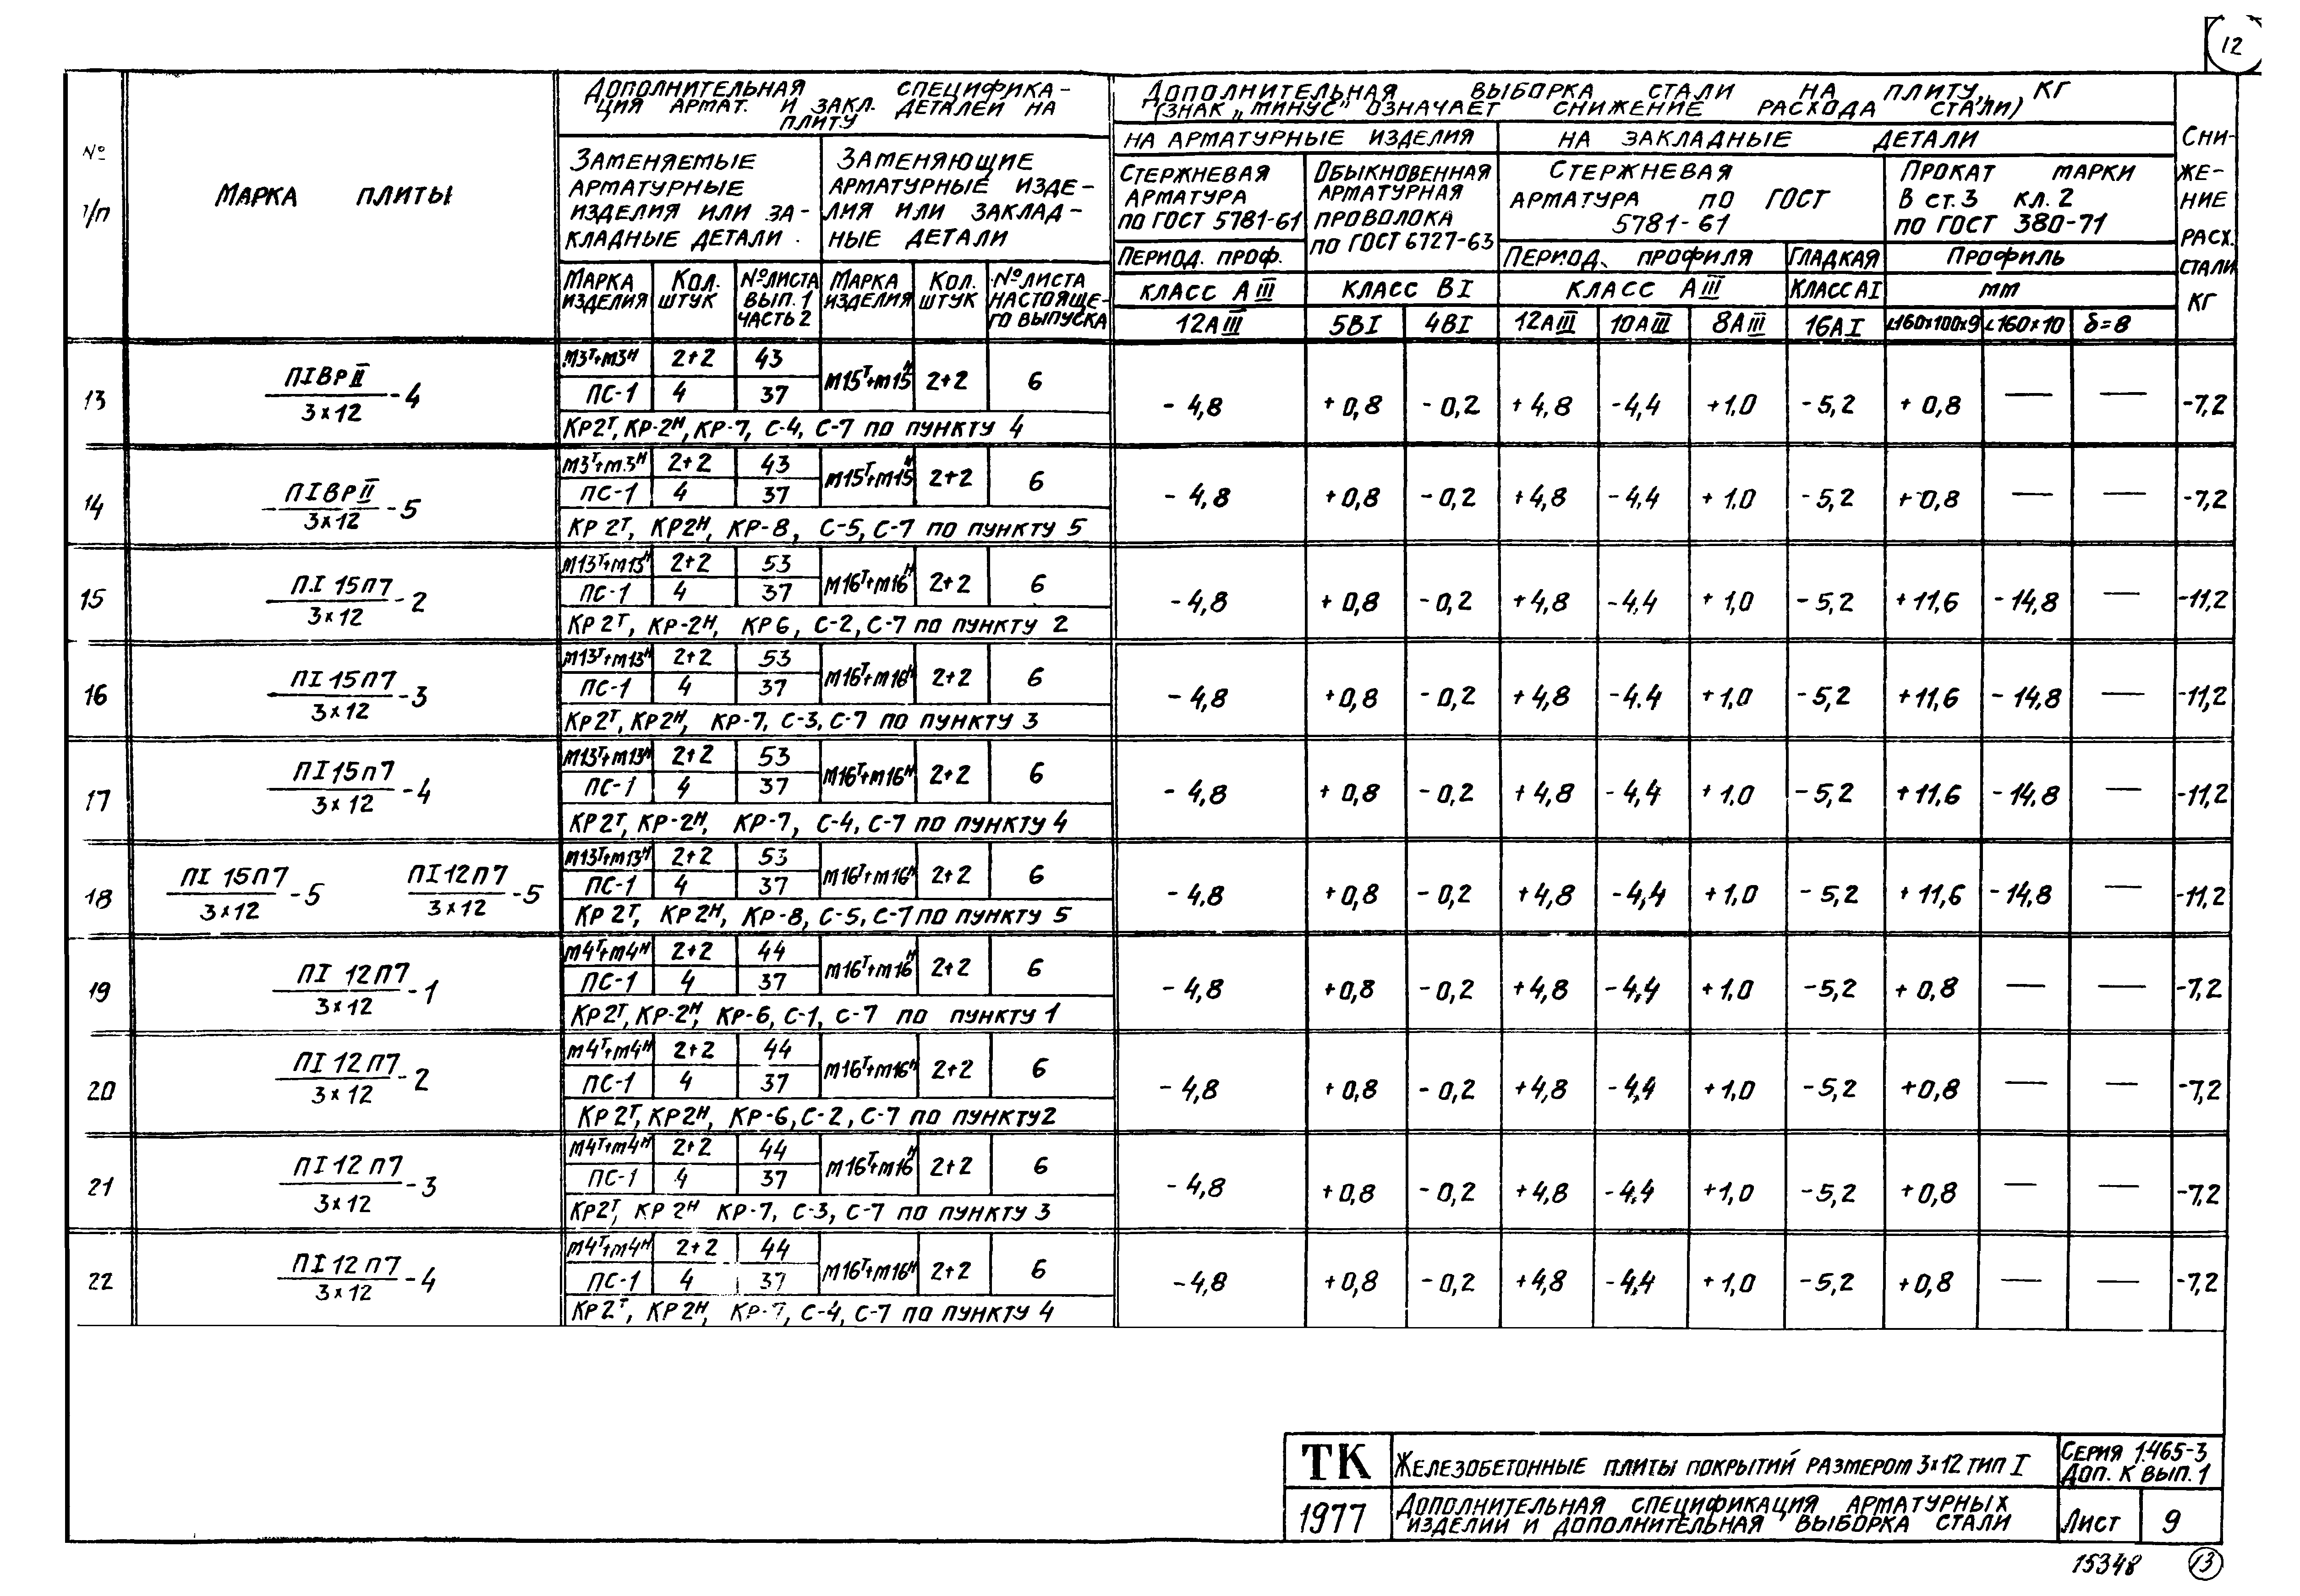 12
№ п/п
МАРКА ПЛИТЫ
ДОПОЛНИТЕЛЬНАЯ СПЕЦИФИКА-
ЦИЯ АРМАТ. И ЗАКЛ. ДЕТАЛЕЙ НА
ПЛИТУ
ДОПОЛНИТЕЛЬНАЯ ВЫБОРКА СТАЛИ НА ПЛИТУ, КГ
(ЗНАК „МИНУС" ОЗНАЧАЕТ СНИЖЕНИЕ РАСХОДА СТАЛИ)
СНИ-
ЖЕ-
НИЕ
РАСХ.
СТАЛИ
КГ
ЗАМЕНЯЕМЫЕ
АРМАТУРНЫЕ
ИЗДЕЛИЯ ИЛИ ЗА-
КЛАДНЫЕ ДЕТАЛИ.
ЗАМЕНЯЮЩИЕ
АРМАТУРНЫЕ ИЗДЕ-
ЛИЯ ИЛИ ЗАКЛАД-
НЫЕ ДЕТАЛИ
НА АРМАТУРНЫЕ ИЗДЕЛИЯ
НА ЗАКЛАДНЫЕ ДЕТАЛИ
СТЕРЖНЕВАЯ
АРМАТУРА
ПО ГОСТ 5781-61
ОБЫКНОВЕННАЯ
АРМАТУРНАЯ
ПРОВОЛОКА
ПО ГОСТ 6727-63
СТЕРЖНЕВАЯ
АРМАТУРА ПО ГОСТ
5781-61
ПРОКАТ МАРКИ
В СТ.3 КЛ.2
ПО ГОСТ 380-71
ПЕРИОД. ПРОФ.
ПЕРИОД. ПРОФИЛЯ
ГЛАДКАЯ
ПРОФИЛЬ
МАРКА ИЗДЕЛИЯ
КОЛ. ШТУК
№ЛИСТА ВЫП.1 ЧАСТЬ 2
МАРКА ИЗДЕЛИЯ
КОЛ. ШТУК
№ЛИСТА НАСТОЯЩЕ-
ГО ВЫПУСКА
КЛАСС АIII
КЛАСС ВI
КЛАСС АIII
КЛАСС АI
мм
12АIII 5ВI 4ВI 12АIII 10АIII 8АIII 16АI ∠160×100×9 ∠160×10 δ=8
13 ПIВРII/3×12-4 М3Т+М3Н 2+2 43 М15Т+М15Н 2+2 6 -4,8 +0,8 -0,2 +4,8 -4,4 +1,0 -5,2 +0,8 — — -7,2
ПС-1 4 37
КР2Т, КР-2Н, КР-7, С-4, С-7 ПО ПУНКТУ 4
14 ПIВРII/3×12-5 М3Т+М.3Н 2+2 43 М15Т+М15Н 2+2 6 -4,8 +0,8 -0,2 +4,8 -4,4 +1,0 -5,2 +0,8 — — -7,2
ПС-1 4 37
КР 2Т, КР2Н, КР-8, С-5, С-7 ПО ПУНКТУ 5
15 П.I 15П7/3×12-2 М13Т+М13Н 2+2 53 М16Т+М16Н 2+2 6 -4,8 +0,8 -0,2 +4,8 -4,4 +1,0 -5,2 +11,6 -14,8 — -11,2
ПС-1 4 37
КР 2Т, КР-2Н, КР6, С-2, С-7 ПО ПУНКТУ 2
16 ПI 15П7/3×12-3 М13Т+М13Н 2+2 53 М16Т+М16Н 2+2 6 -4,8 +0,8 -0,2 +4,8 -4,4 +1,0 -5,2 +11,6 -14,8 — -11,2
ПС-1 4 37
КР2Т, КР2Н, КР-7, С-3, С-7 ПО ПУНКТУ 3
17 ПI15П7/3×12-4 М13Т+М13Н 2+2 53 М16Т+М16Н 2+2 6 -4,8 +0,8 -0,2 +4,8 -4,4 +1,0 -5,2 +11,6 -14,8 — -11,2
ПС-1 4 37
КР2Т, КР-2Н, КР-7, С-4, С-7 ПО ПУНКТУ 4
18 ПI 15П7/3×12-5 ПI12П7/3×12-5 М13Т+М13Н 2+2 53 М16Т+М16Н 2+2 6 -4.8 +0,8 -0,2 +4,8 -4,4 +1,0 -5,2 +11,6 -14,8 — -11,2
ПС-1 4 37
КР 2Т, КР2Н, КР-8, С-5, С-7 ПО ПУНКТУ 5
19 ПI 12П7/3×12-1 М4Т+М4Н 2+2 44 М16Т+М16Н 2+2 6 -4,8 +0,8 -0,2 +4,8 -4,4 +1,0 -5,2 +0,8 — — -7,2
ПС-1 4 37
КР2Т, КР-2Н, КР-6, С-1, С-7 ПО ПУНКТУ 1
20 ПI 12П7/3×12-2 М4Т+М4Н 2+2 44 М16Т+М16Н 2+2 6 -4,8 +0,8 -0,2 +4,8 -4,4 +1,0 -5,2 +0,8 — — -7,2
ПС-1 4 37
КР 2Т, КР2Н, КР-6, С-2, С-7 ПО ПУНКТУ 2
21 ПI 12П7/3×12-3 М4Т+М4Н 2+2 44 М16Т+М16Н 2+2 6 -4,8 +0,8 -0,2 +4,8 -4,4 +1,0 -5,2 +0,8 — — -7,2
ПС-1 4 37
КР2Т, КР 2Н КР-7, С-3, С-7 ПО ПУНКТУ 3
22 ПI 12П7/3×12-4 М4Т+М4Н 2+2 44 М16Т+М16Н 2+2 6 -4,8 +0,8 -0,2 +4,8 -4,4 +1,0 -5,2 +0,8 — — -7,2
ПС-1 4 37
КР2Т, КР2Н, КР-7, С-4, С-7 ПО ПУНКТУ 4
ТК ЖЕЛЕЗОБЕТОННЫЕ ПЛИТЫ ПОКРЫТИЙ РАЗМЕРОМ 3×12 ТИП I
СЕРИЯ 1.465-3
ДОП. К ВЫП. 1
1977 ДОПОЛНИТЕЛЬНАЯ СПЕЦИФИКАЦИЯ АРМАТУРНЫХ
ИЗДЕЛИЙ И ДОПОЛНИТЕЛЬНАЯ ВЫБОРКА СТАЛИ
ЛИСТ 9
15348 13